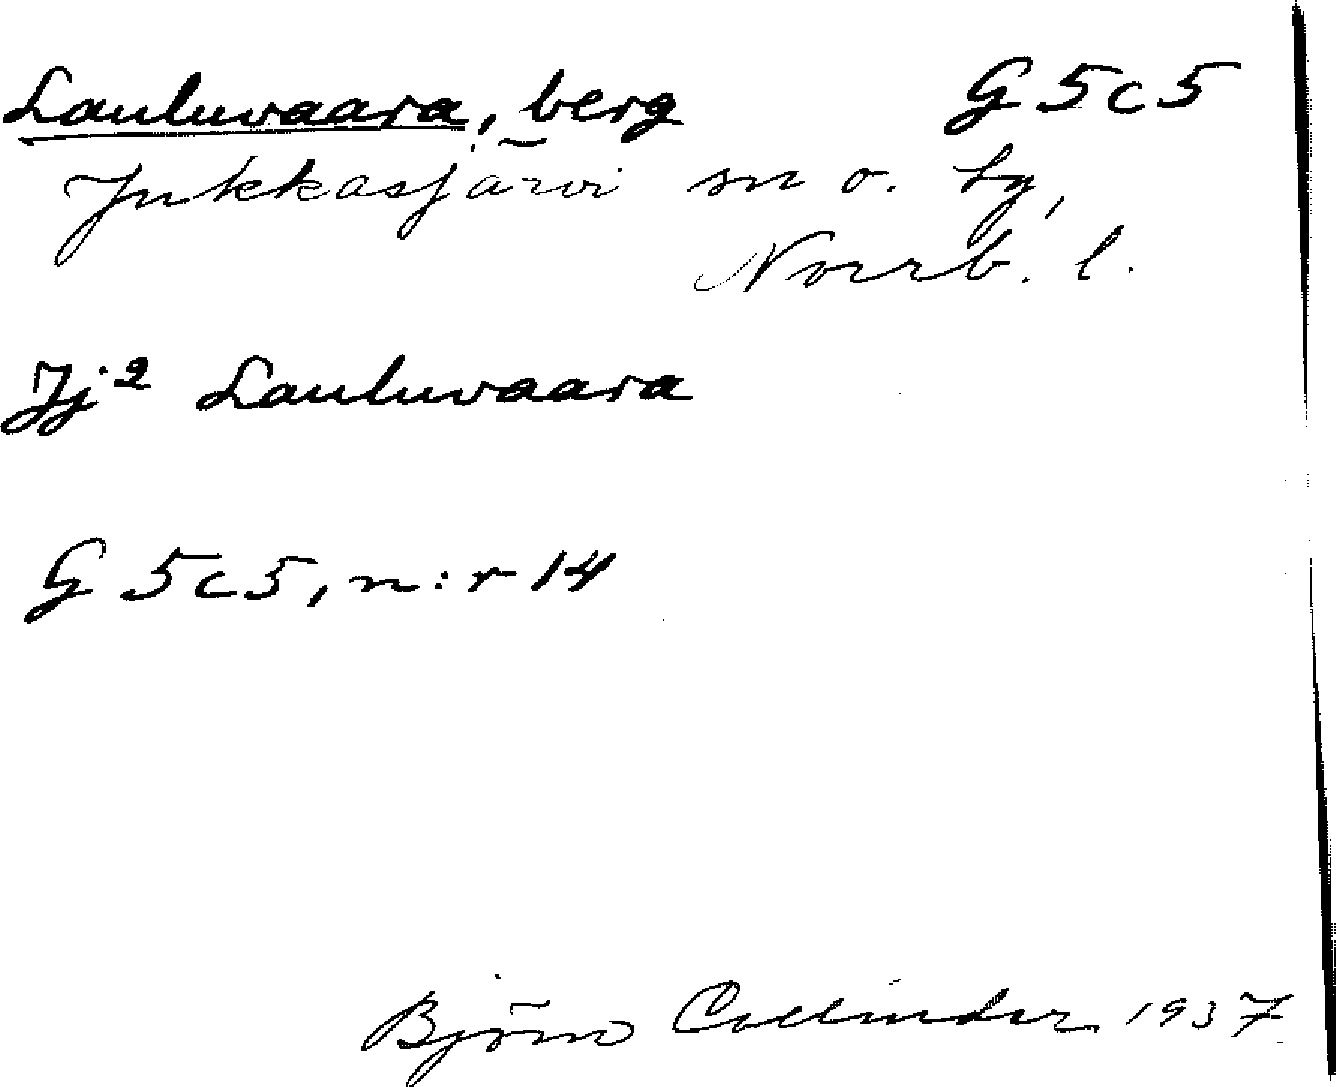 Lauluvaara, berg G 5 c 5
Jukkasjärvi sn o. tg,
Norrb. l.
Jj² Lauluvaara
G 5 c 5, n:r 14
Björn Collinder 1937